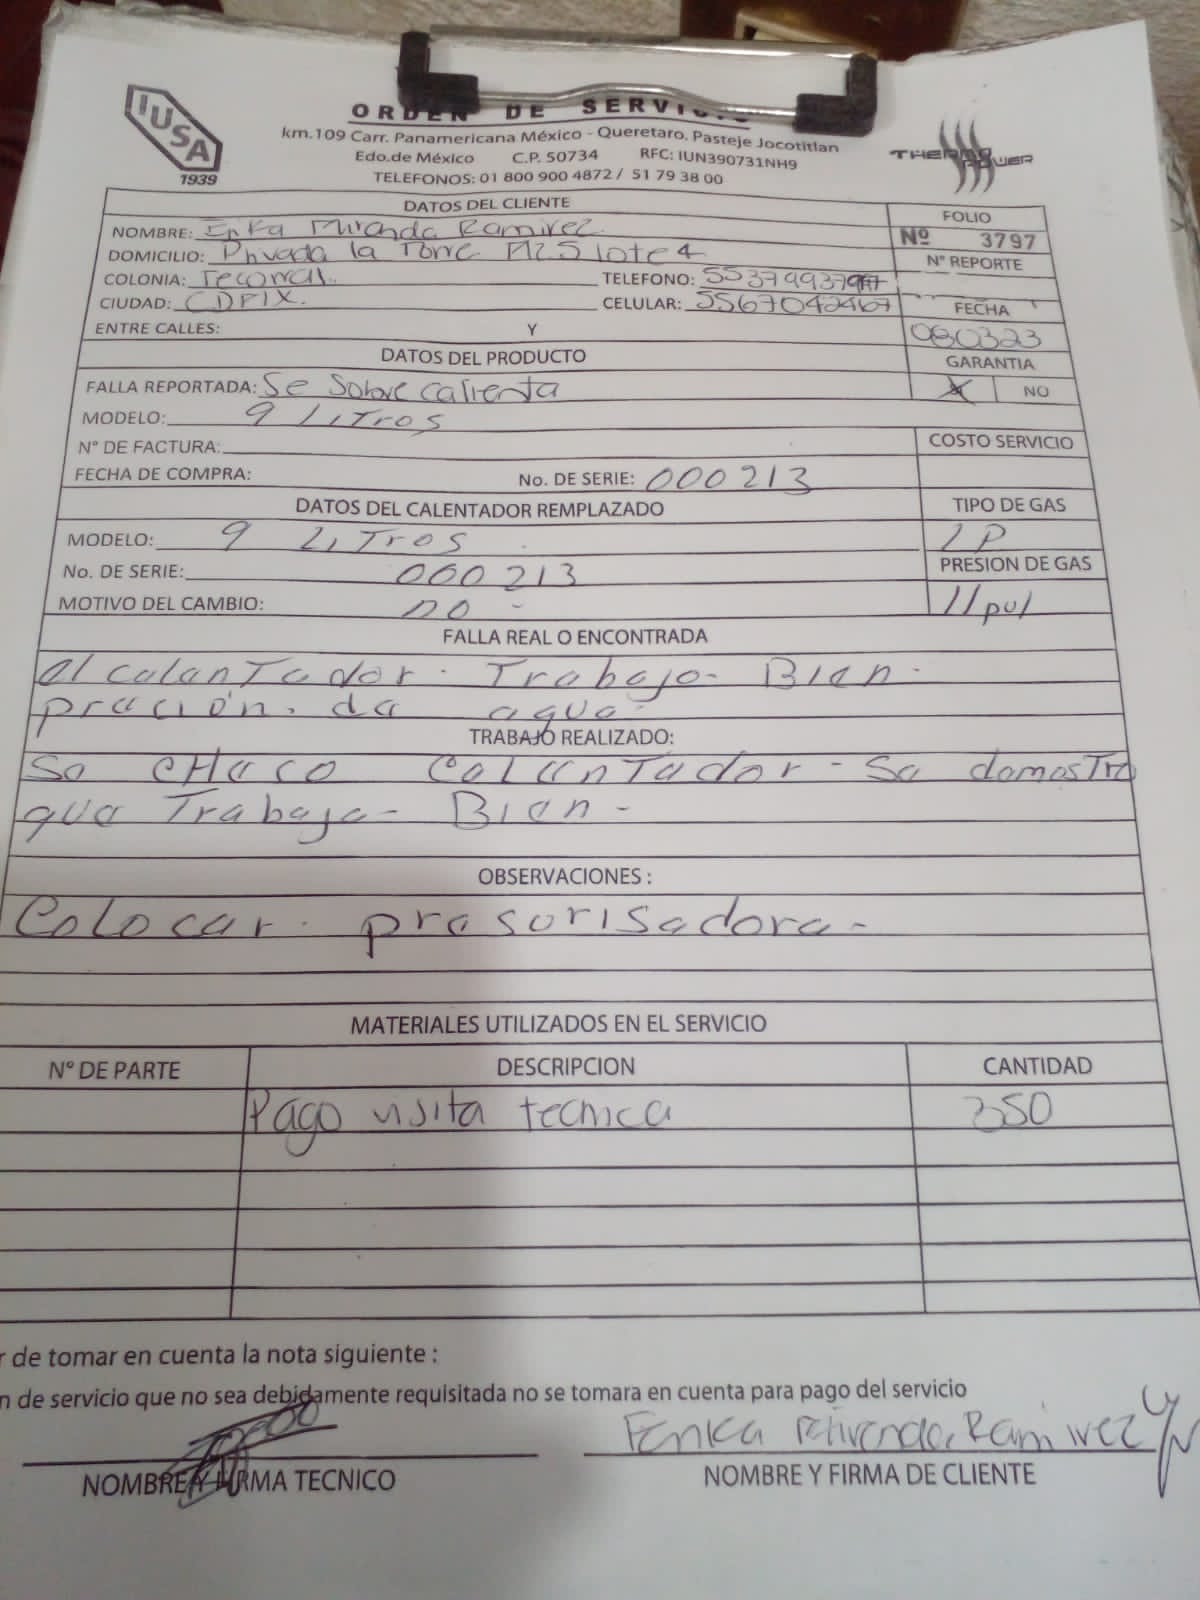 IUSA
1939
ORDEN DE SERVICIO
km.109 Carr. Panamericana México - Queretaro, Pasteje Jocotitlan
Edo.de México C.P. 50734 RFC: IUN390731NH9
TELEFONOS: 01 800 900 4872 / 51 79 38 00
THERMO POWER
DATOS DEL CLIENTE
FOLIO
NOMBRE: Erika Miranda Ramirez
Nº 3797
DOMICILIO: Privada la Torre MZ5 lote 4
Nº REPORTE
COLONIA: Tecorral
TELEFONO:
CIUDAD: CDMX.
CELULAR: 5567042467
FECHA
ENTRE CALLES: Y
080323
DATOS DEL PRODUCTO
GARANTIA
FALLA REPORTADA: Se sobre calienta
X NO
MODELO: 9 LiTros
Nº DE FACTURA:
COSTO SERVICIO
FECHA DE COMPRA: No. DE SERIE: 000213
DATOS DEL CALENTADOR REMPLAZADO
TIPO DE GAS
MODELO: 9 LiTros
LP
No. DE SERIE: 000213
PRESION DE GAS
MOTIVO DEL CAMBIO: no -
11 pul
FALLA REAL O ENCONTRADA
el calenTador - Trabajo - Bien -
preción. de agua
TRABAJO REALIZADO:
Se cHeco CalenTador - Se demosTro
que Trabaja - Bien -
OBSERVACIONES :
Colocar - presorisadora -
MATERIALES UTILIZADOS EN EL SERVICIO
Nº DE PARTE DESCRIPCION CANTIDAD
Pago visita tecnica 350
r de tomar en cuenta la nota siguiente :
n de servicio que no sea debidamente requisitada no se tomara en cuenta para pago del servicio
Erika Miranda Ramirez
NOMBRE Y FIRMA TECNICO NOMBRE Y FIRMA DE CLIENTE